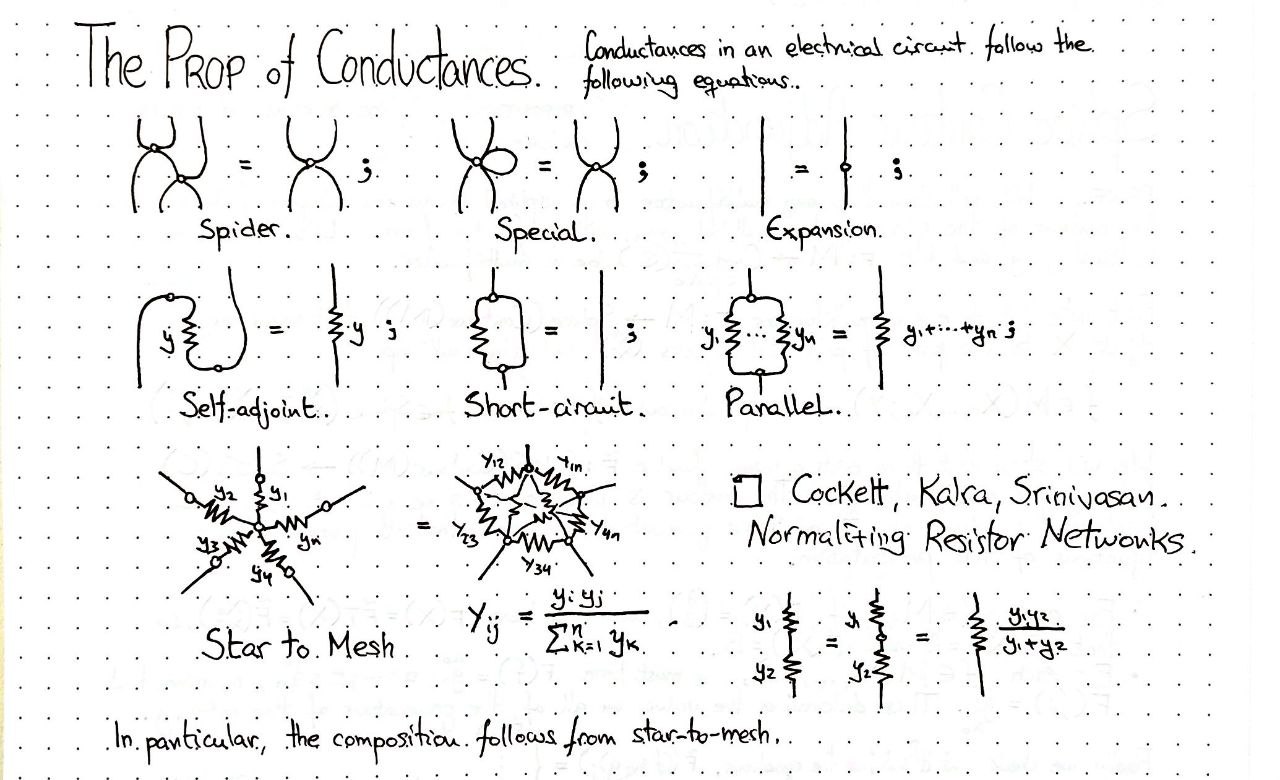 The PROP of Conductances.
Conductances in an electrical circuit follow the
following equations.
= ;
Spider.
= ;
Special.
= ;
Expansion.
y = y ;
Self-adjoint.
= ;
Short-circuit.
y₁ ... yₙ = y₁+...+yₙ ;
Parallel.
y₁ y₂ y₃ y₄ yₙ = Y₁₂ Y₁ₙ Y₂₃ Y₃₄ Y₄ₙ
Star to Mesh
Yᵢⱼ = yᵢ yⱼ / ∑ⁿₖ₌₁ yₖ .
□ Cockett, Kalra, Srinivasan.
Normalizing Resistor Networks.
y₁ y₂ = y₁ y₂ = y₁y₂ / y₁+y₂
In particular, the composition follows from star-to-mesh.